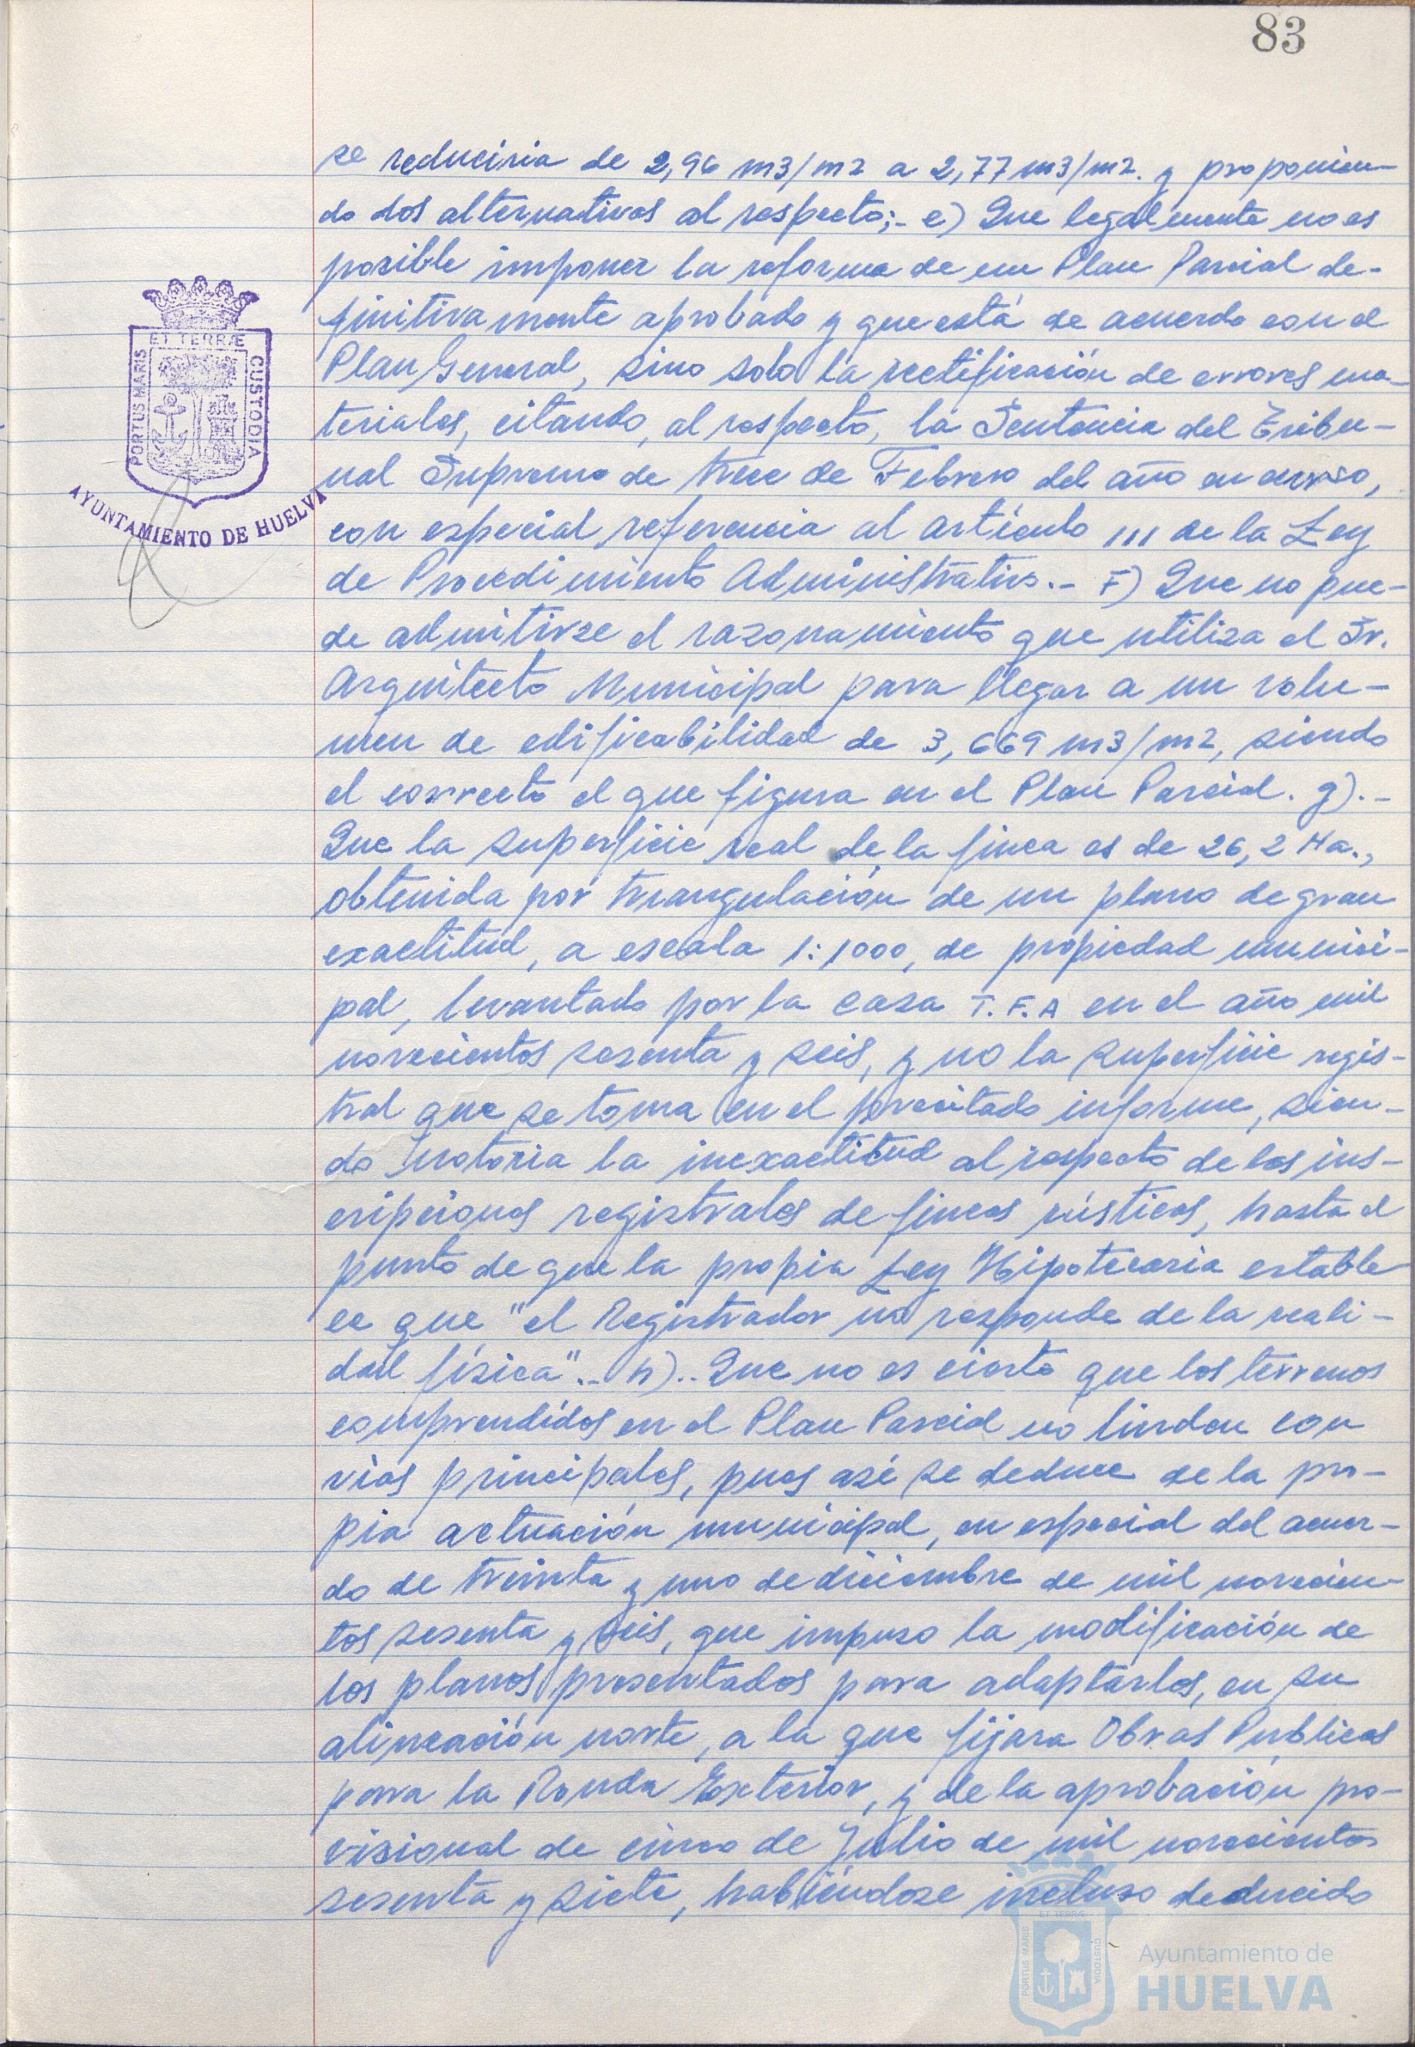 83
se reduciria de 2,96 m3/m2 a 2,77 m3/m2. y proponien-
do dos alternativas al respecto;- e) Que legalmente no es
posible imponer la reforma de un Plan Parcial de-
finitivamente aprobado y que está de acuerdo con el
Plan General, sino solo la rectificación de errores ma-
teriales, citando, al respecto, la Sentencia del Tribu-
nal Supremo de trece de Febrero del año en curso,
con especial referencia al artículo 111 de la Ley
de Procedimiento Administrativo.- F) Que no pue-
de admitirse el razonamiento que utiliza el Sr.
Arquitecto Municipal para llegar a un volu-
men de edificabilidad de 3,669 m3/m2, siendo
el correcto el que figura en el Plan Parcial. g).-
Que la superficie real de la finca es de 26,2 Ha.,
obtenida por triangulación de un plano de gran
exactitud, a escala 1:1000, de propiedad munici-
pal, levantado por la casa T.F.A en el año mil
novecientos sesenta y seis, y no la superficie regis-
tral que se toma en el precitado informe, sien-
do notoria la inexactitud al respecto de las ins-
cripciones registrales de fincas rústicas, hasta el
punto de que la propia Ley Hipotecaria estable
ce que "el Registrador no responde de la reali-
dad física".- h).. Que no es cierto que los terrenos
comprendidos en el Plan Parcial no linden con
vías principales, pues asé se deduce de la pro-
pia actuación municipal, en especial del acuer-
do de treinta y uno de diciembre de mil novecien-
tos sesenta y seis, que impuso la modificación de
los planos presentados para adaptarlos, en su
alineación norte, a la que fijara Obras Publicas
para la Ronda Exterior, y de la aprobación pro-
visional de cinco de Julio de mil novecientos
sesenta y siete, habiéndose incluso deducido
PORTUS MARIS
ET TERRÆ
CUSTODIA
AYUNTAMIENTO DE HUELVA
PORTUS MARIS
ET TERRÆ
CUSTODIA
Ayuntamiento de
HUELVA